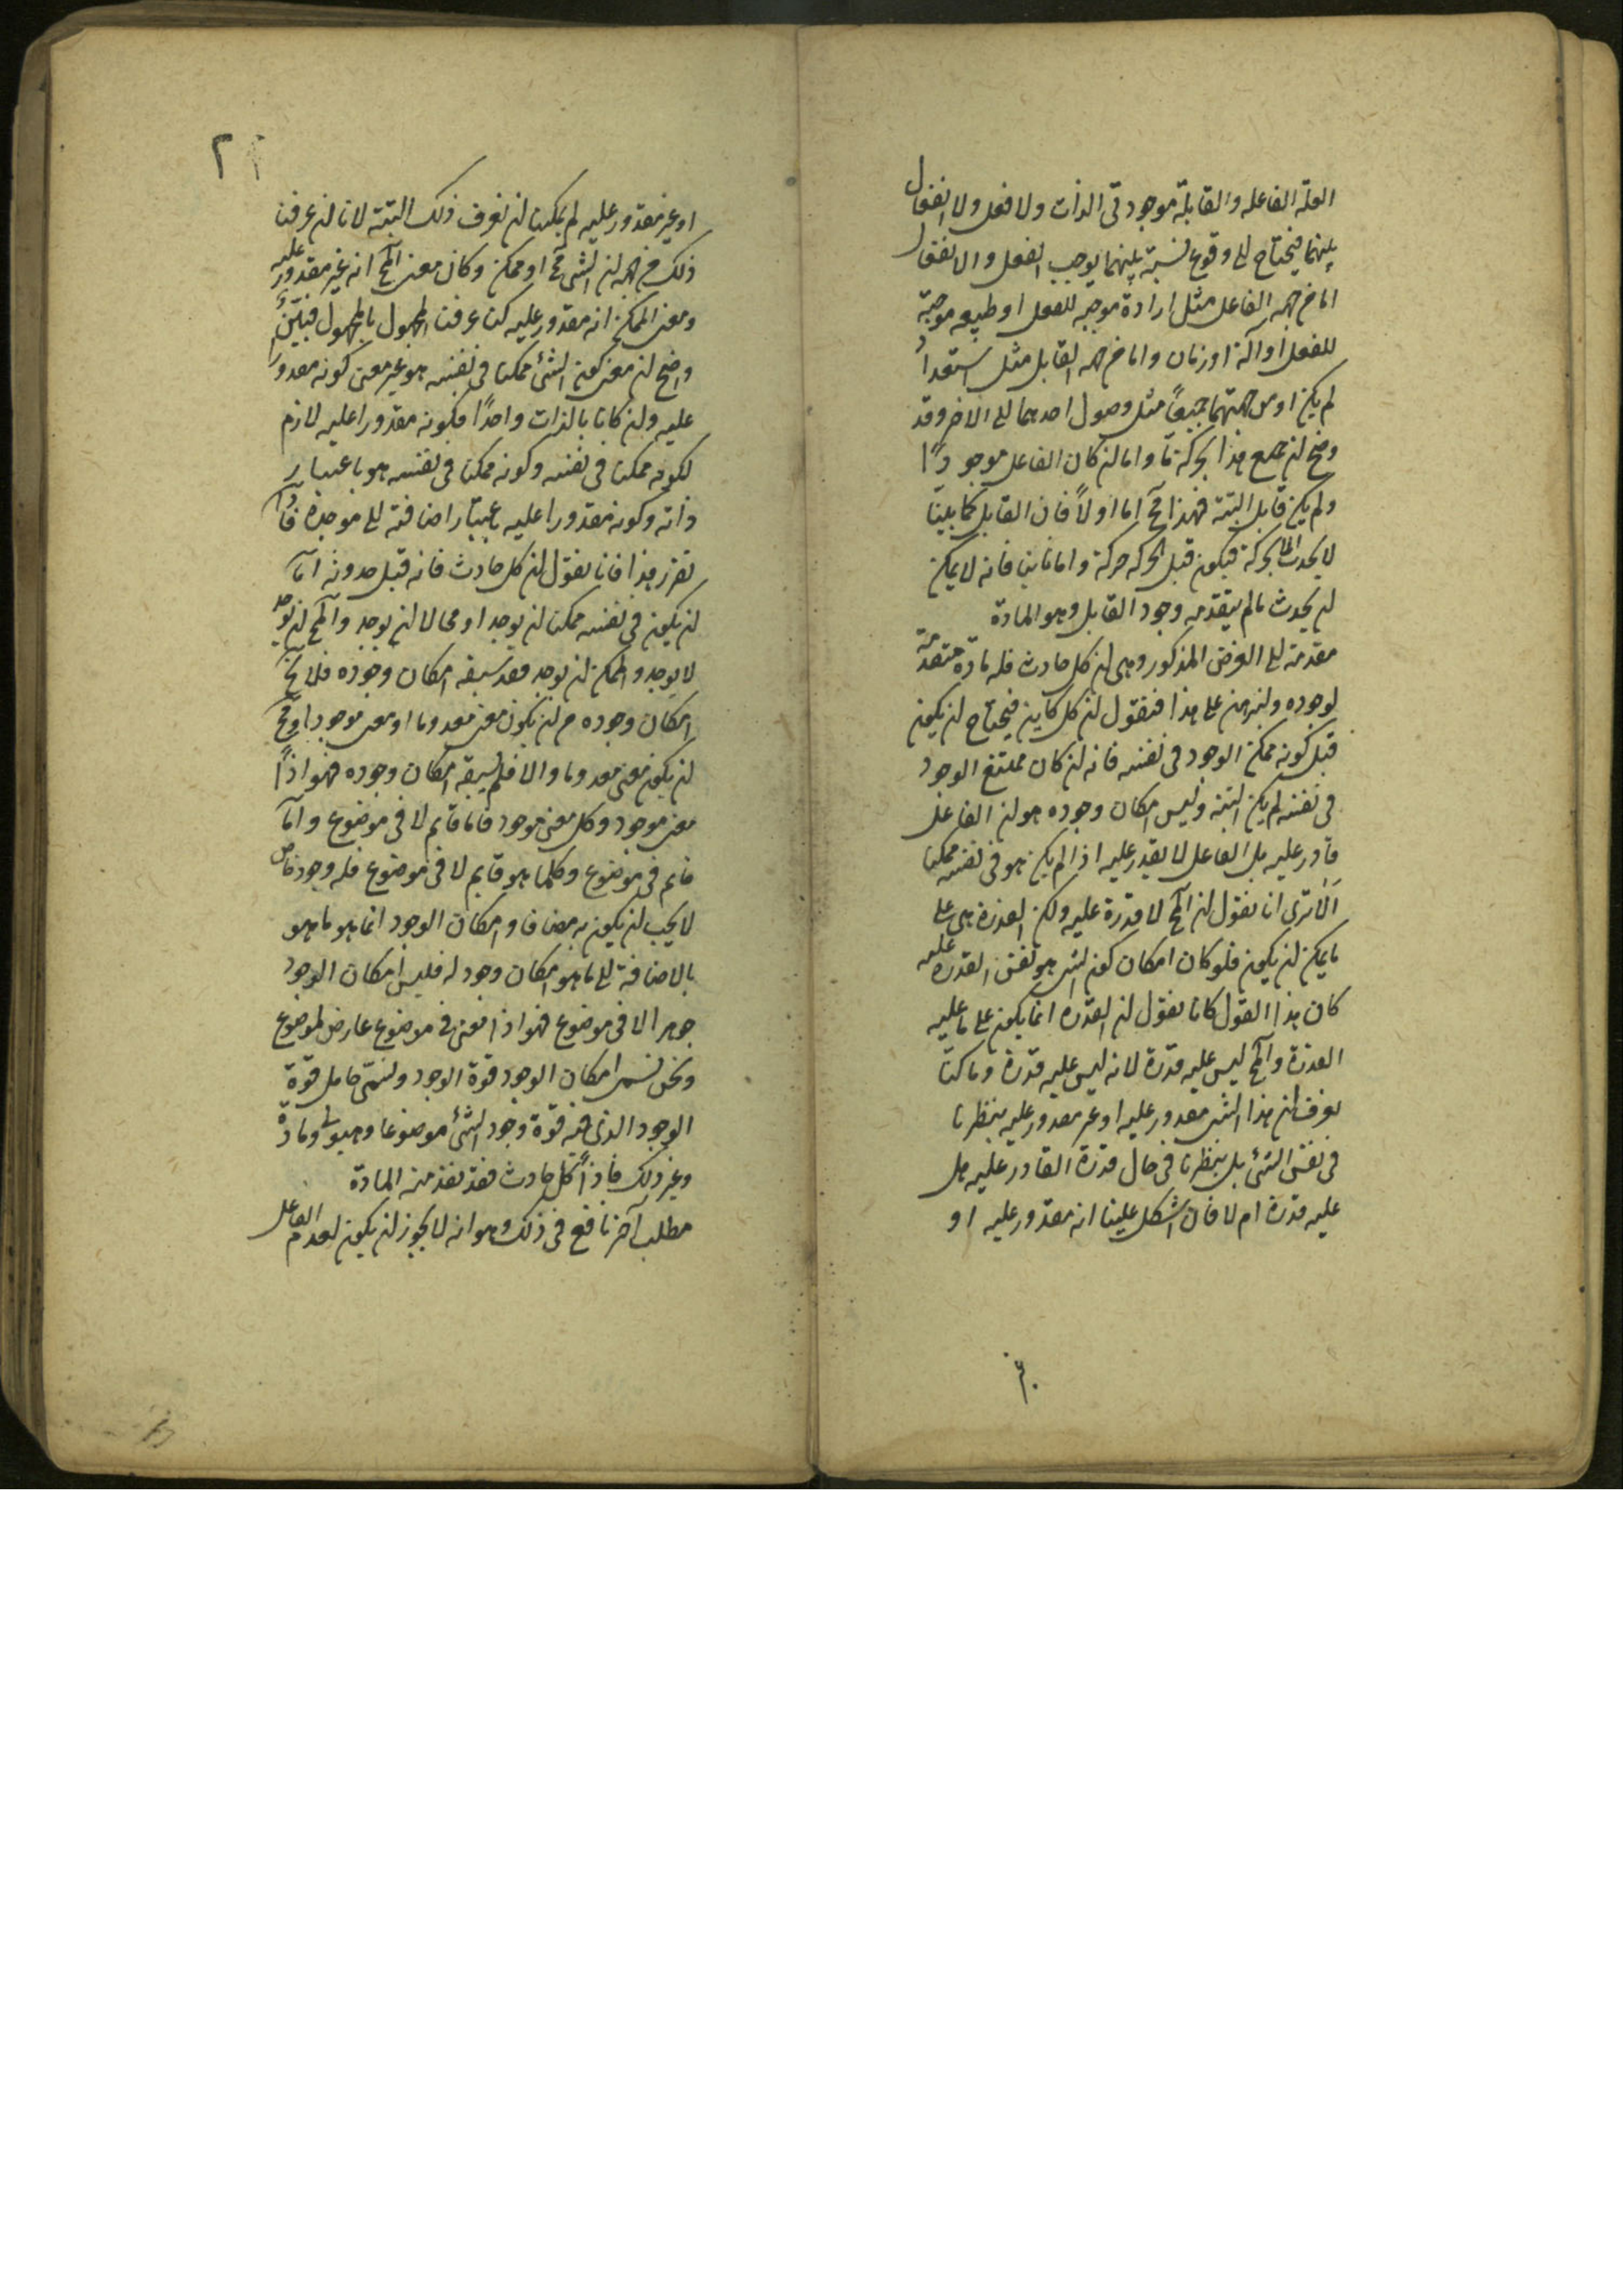 العلة الفاعله والقابلة موجودتى الذات ولا فعل ولا انفعال
بينهما فيحتاج الى وقوع نسبة بينهما يوجب الفعل والانفعال
اما من جهه الفاعل مثل ارادة موجبه للفعل او طبيعه موجبة
للفعل او آلة او زمان واما من جهه القابل مثل استعداد
لم يكن او من جهتهما جميعاً مثل وصول احدهما الى الاخر وقد
وضح ان جميع هذا بحركة ما واما ان كان الفاعل موجوداً
ولم يكن قابل البتة فهذا مح اما اولاً فان القابل كما بينا
لا يحدث الا بحركة فيكون قبل الحركه حركة واما ثانيا فانه لا يمكن
ان يحدث ما لم يتقدمه وجود القابل وهو المادة
مقدمة الى الغرض المذكور وهى ان كل حادث فله مادة متقدمة
لوجوده ولنبرهن على هذا فنقول ان كل كاين فيحتاج ان يكون
قبل كونه ممكن الوجود فى نفسه فانه ان كان ممتنع الوجود
فى نفسه لم يكن البتة وليس امكان وجوده هو ان الفاعل
قادر عليه بل الفاعل لا يقدر عليه اذا لم يكن هو فى نفسه ممكنا
الا ترى انا نقول ان المح لا قدرة عليه ولكن القدرة هى على
ما يمكن ان يكون فلو كان امكان كون الشى هو نفس القدره عليه
كان هذا القول كانا نقول ان القدره انما يكون على ما عليه
القدرة والمح ليس عليه قدرة لانه ليس عليه قدرة وما كنا
نعرف ان هذا الشى مقدور عليه او غير مقدور عليه بنظرنا
فى نفس الشئ بل بنظرنا فى حال قدرة القادر عليه هل
عليه قدرة ام لا فان اشكل علينا انه مقدور عليه او
او غير مقدور عليه لم يمكننا ان نعرف ذلك البتة لانا ان عرفنا
ذلك من جهه ان الشى مح او ممكن وكان معنى المح انه غير مقدور عليه
ومعنى الممكن انه مقدور عليه كنا عرفنا المجهول بالمجهول فبيّن
واضح ان معنى كون الشئ ممكنا فى نفسه هو غير معنى كونه مقدورا
عليه وان كانا بالذات واحداً فكونه مقدورا عليه لازم
لكونه ممكنا فى نفسه وكونه ممكنا فى نفسه هو باعتبار
ذاته وكونه مقدورا عليه باعتبار اضافته الى موجده فاذا
تقرر هذا فانا نقول ان كل حادث فانه قبل حدوثه اما
ان يكون فى نفسه ممكنا ان يوجد او محالا ان يوجد والمح ان يوجد
لا يوجد والممكن ان يوجد فقد سبقه امكان وجوده فلا يخ
امكان وجوده من ان يكون معنى معدوما او معنى موجودا ومح
ان يكون معنى معدوما والا فلم يسبقه امكان وجوده فهو اذاً
معنى موجود وكل معنى موجود فاما قايم لا فى موضوع واما
قايم فى موضوع وكلما هو قايم لا فى موضوع فله وجود خاص
لا يجب ان يكون به مضافا وامكان الوجود انما هو ما هو
بالاضافة الى ما هو امكان وجود له فليس امكان الوجود
جوهرا لا فى موضوع فهو اذا معنى فى موضوع عارض لموضوع
ونحن نسمى امكان الوجود قوة الوجود ونسمّى حامل قوّة
الوجود الذى فيه قوّة وجود الشئ موضوعا وهيولى ومادّة
وغير ذلك فاذاً كل حادث فقد تقدمته المادة
مطلب آخر نافع فى ذلك وهو انه لا يجوز ان يكون لعدم الفاعل